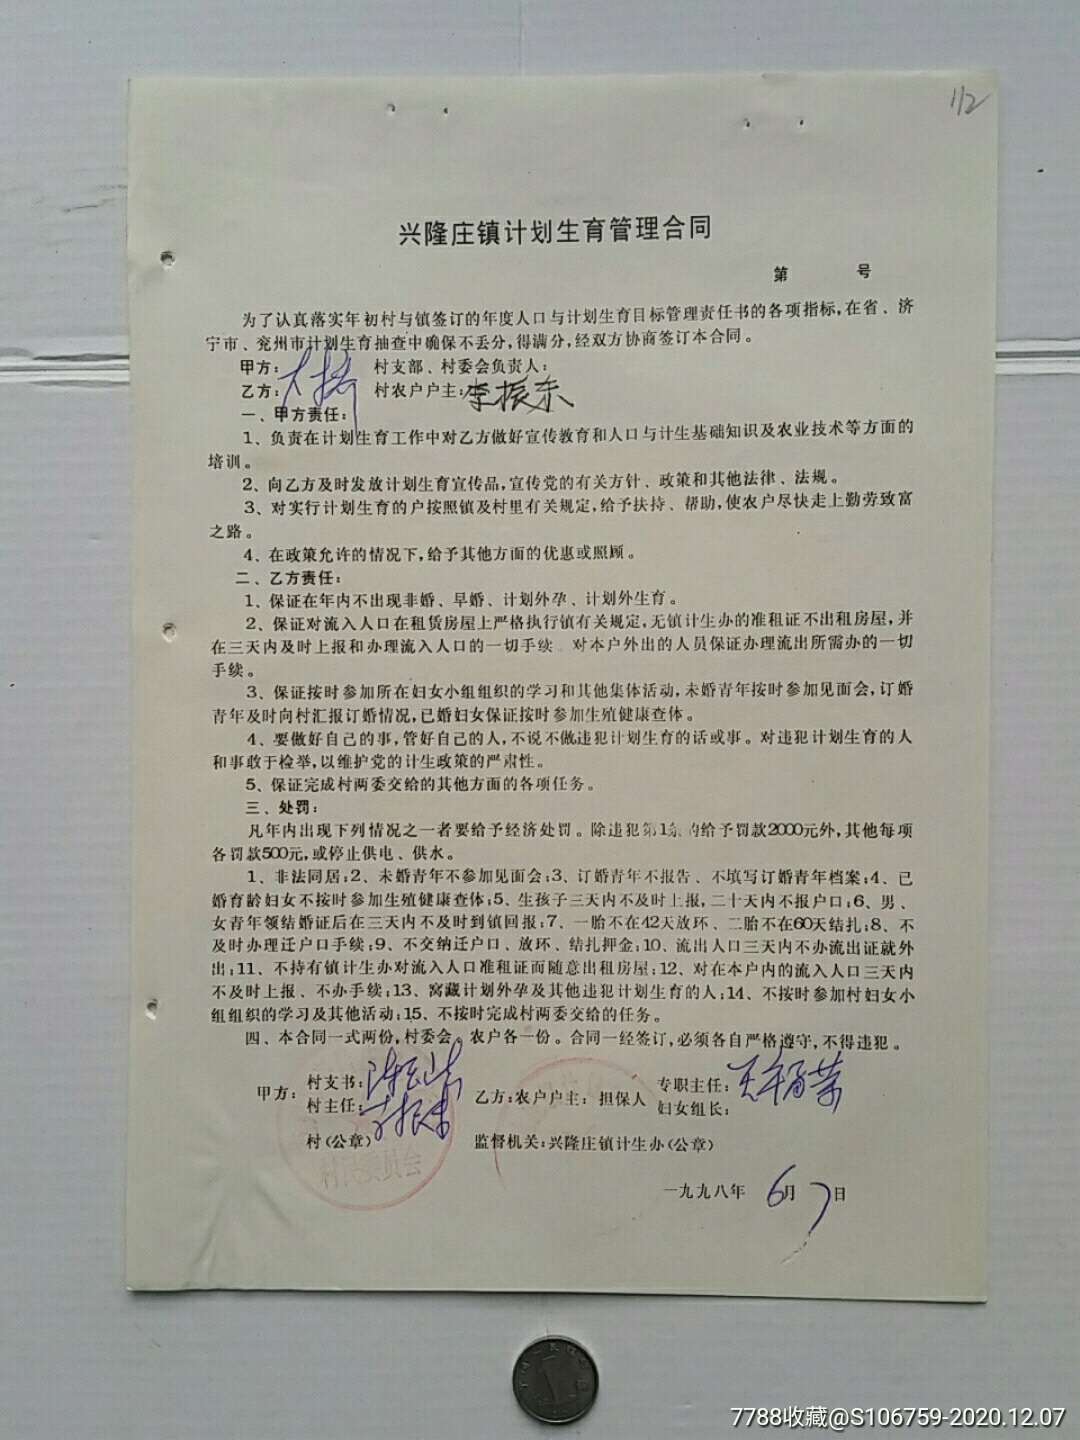 112
兴隆庄镇计划生育管理合同
第 号
为了认真落实年初村与镇签订的年度人口与计划生育目标管理责任书的各项指标,在省、济
宁市、兖州市计划生育抽查中确保不丢分,得满分,经双方协商签订本合同。
甲方: 村支部、村委会负责人:
乙方: 村农户户主:李振东
一、甲方责任:
1、负责在计划生育工作中对乙方做好宣传教育和人口与计生基础知识及农业技术等方面的
培训。
2、向乙方及时发放计划生育宣传品,宣传党的有关方针、政策和其他法律、法规。
3、对实行计划生育的户按照镇及村里有关规定,给予扶持、帮助,使农户尽快走上勤劳致富
之路。
4、在政策允许的情况下,给予其他方面的优惠或照顾。
二、乙方责任:
1、保证在年内不出现非婚、早婚、计划外孕、计划外生育。
2、保证对流入人口在租赁房屋上严格执行镇有关规定,无镇计生办的准租证不出租房屋,并
在三天内及时上报和办理流入人口的一切手续。对本户外出的人员保证办理流出所需办的一切
手续。
3、保证按时参加所在妇女小组组织的学习和其他集体活动,未婚青年按时参加见面会,订婚
青年及时向村汇报订婚情况,已婚妇女保证按时参加生殖健康查体。
4、要做好自己的事,管好自己的人,不说不做违犯计划生育的话或事。对违犯计划生育的人
和事敢于检举,以维护党的计生政策的严肃性。
5、保证完成村两委交给的其他方面的各项任务。
三、处罚:
凡年内出现下列情况之一者要给予经济处罚。除违犯第1条的给予罚款2000元外,其他每项
各罚款500元,或停止供电、供水。
1、非法同居;2、未婚青年不参加见面会;3、订婚青年不报告、不填写订婚青年档案;4、已
婚育龄妇女不按时参加生殖健康查体;5、生孩子三天内不及时上报,二十天内不报户口;6、男、
女青年领结婚证后在三天内不及时到镇回报;7、一胎不在42天放环、二胎不在60天结扎;8、不
及时办理迁户口手续;9、不交纳迁户口、放环、结扎押金;10、流出人口三天内不办流出证就外
出;11、不持有镇计生办对流入人口准租证而随意出租房屋;12、对在本户内的流入人口三天内
不及时上报、不办手续;13、窝藏计划外孕及其他违犯计划生育的人;14、不按时参加村妇女小
组组织的学习及其他活动;15、不按时完成村两委交给的任务。
四、本合同一式两份,村委会。农户各一份。合同一经签订,必须各自严格遵守,不得违犯。
甲方: 村支书: 乙方:农户户主: 担保人 专职主任:
村主任: 妇女组长:
村(公章) 监督机关:兴隆庄镇计生办(公章)
村民委员会
一九九八年 6月7日
7788收藏@S106759-2020.12.07